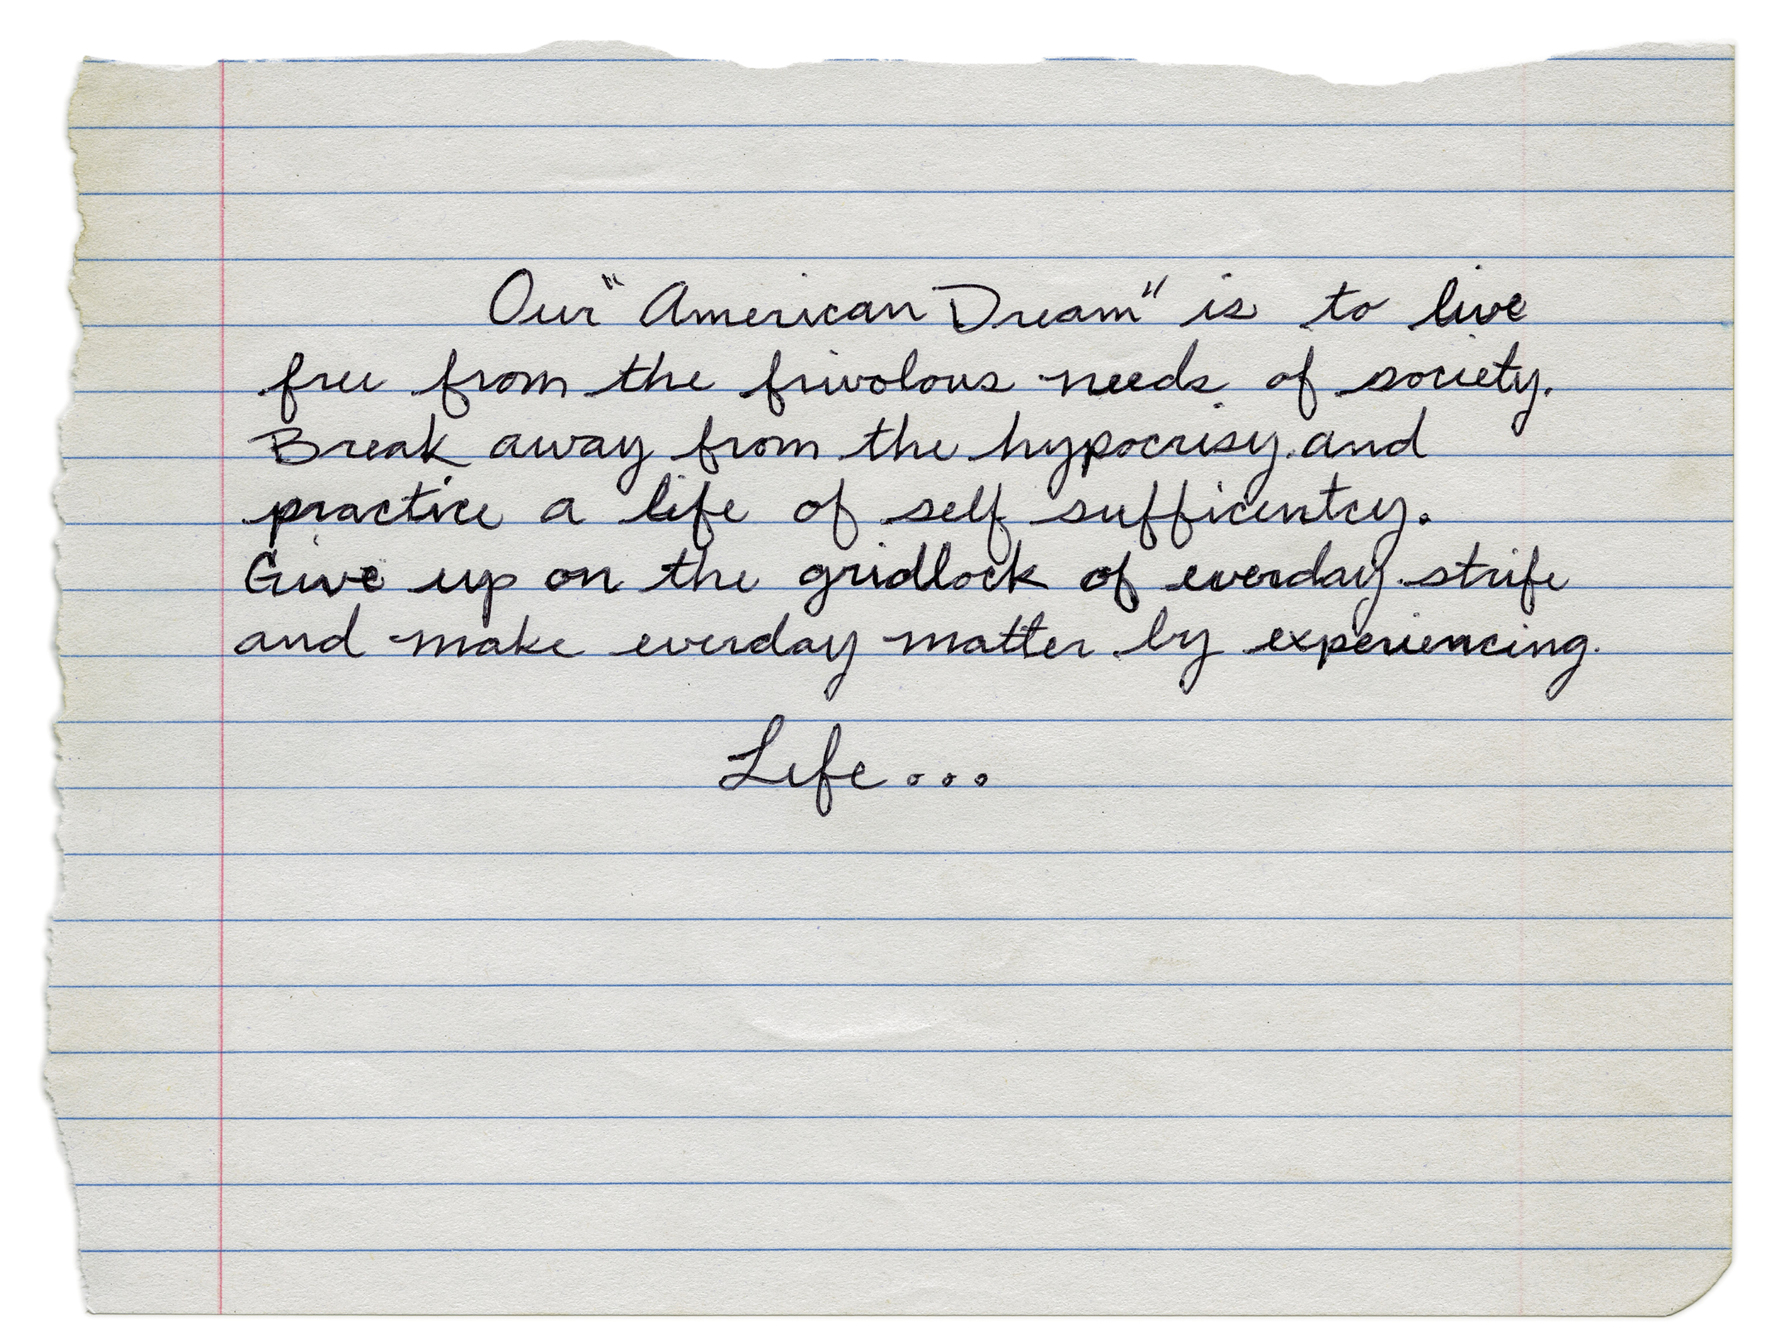 Our "American Dream" is to live
free from the frivolous needs of society.
Break away from the hypocrisy and
practice a life of self sufficientcy.
Give up on the gridlock of everday strife
and make everday matter by experiencing.
Life...